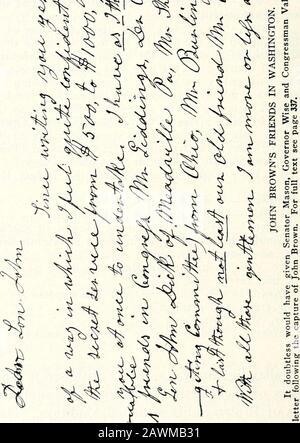 Dear Son John
Since writing you yes
of a way in which I feel quite confident
the secret service from $500, to $1000,
you at once to undertake. I have as I th
public friends in Congress Mr Giddings,
Gen Dick of Meadville Pa, Mr
gating Committee) from Ohio, Mr Burlin
& last though not least our Old friend
With all those gentlemen I am more or less a
JOHN BROWN'S FRIENDS IN WASHINGTON.
It doubtless would have given Senator Mason, Governor Wise and Congressman Val
letter following the capture of John Brown. For full text see page 337.
alamy
2AWMB31